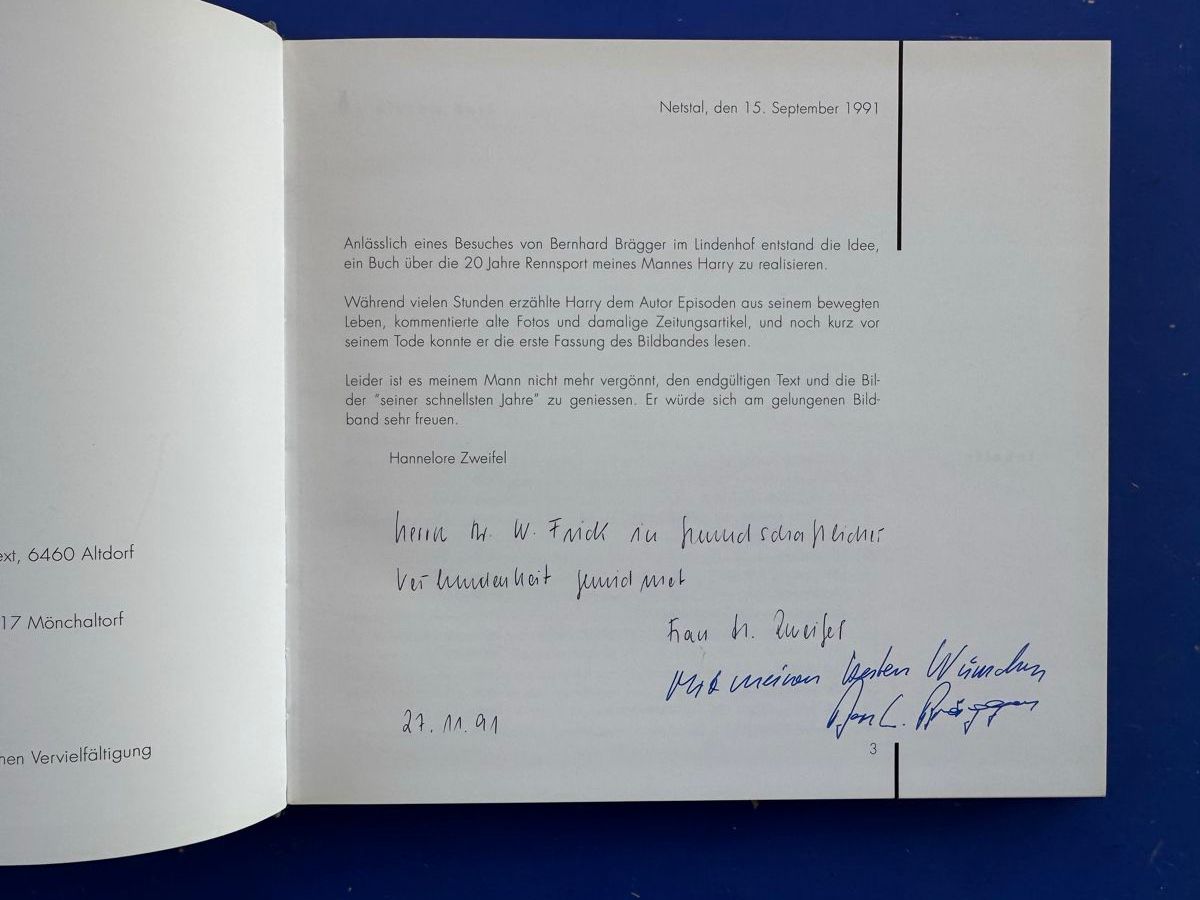 ext, 6460 Altdorf
17 Mönchaltorf
nen Vervielfältigung
Netstal, den 15. September 1991
Anlässlich eines Besuches von Bernhard Brägger im Lindenhof entstand die Idee,
ein Buch über die 20 Jahre Rennsport meines Mannes Harry zu realisieren.
Während vielen Stunden erzählte Harry dem Autor Episoden aus seinem bewegten
Leben, kommentierte alte Fotos und damalige Zeitungsartikel, und noch kurz vor
seinem Tode konnte er die erste Fassung des Bildbandes lesen.
Leider ist es meinem Mann nicht mehr vergönnt, den endgültigen Text und die Bil-
der "seiner schnellsten Jahre" zu geniessen. Er würde sich am gelungenen Bild-
band sehr freuen.
Hannelore Zweifel
Herrn Dr. W. Frick in freundschaftlicher
Verbundenheit gewidmet
Frau H. Zweifel
Mit meinen besten Wünschen
Brägger
27. 11. 91
3